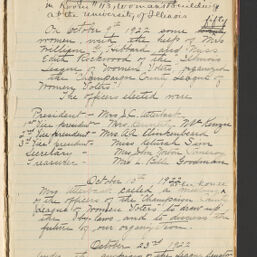 in Room #113, Woman's Building
at the University of Illinois
fifty
On October 9th 1922 some
women, with the help of Mrs
William G. Hubbard, and Miss
Edith Rockwood of the Illinois
League of Women Voters, organized
the "Champaign County League of
Women Voters".
The officers elected were
President - Mrs J.C.
1st Vice president - Mrs
2nd Vice president - Mrs
3rd Vice president - Miss
Secretary - Mrs John
Treasurer - Mrs A. Bell Goodman
October 13th 1922
Mrs called a meeting at her house
of the officers of the Champaign County
League of Women Voters to draw up
the By laws, and to discuss the
future of our organization.
October 23rd 1922